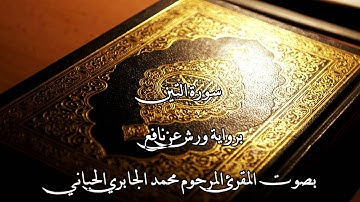 سورة التين
برواية ورش عن نافع
بصوت المقرئ المرحوم محمد الجابري الحياني